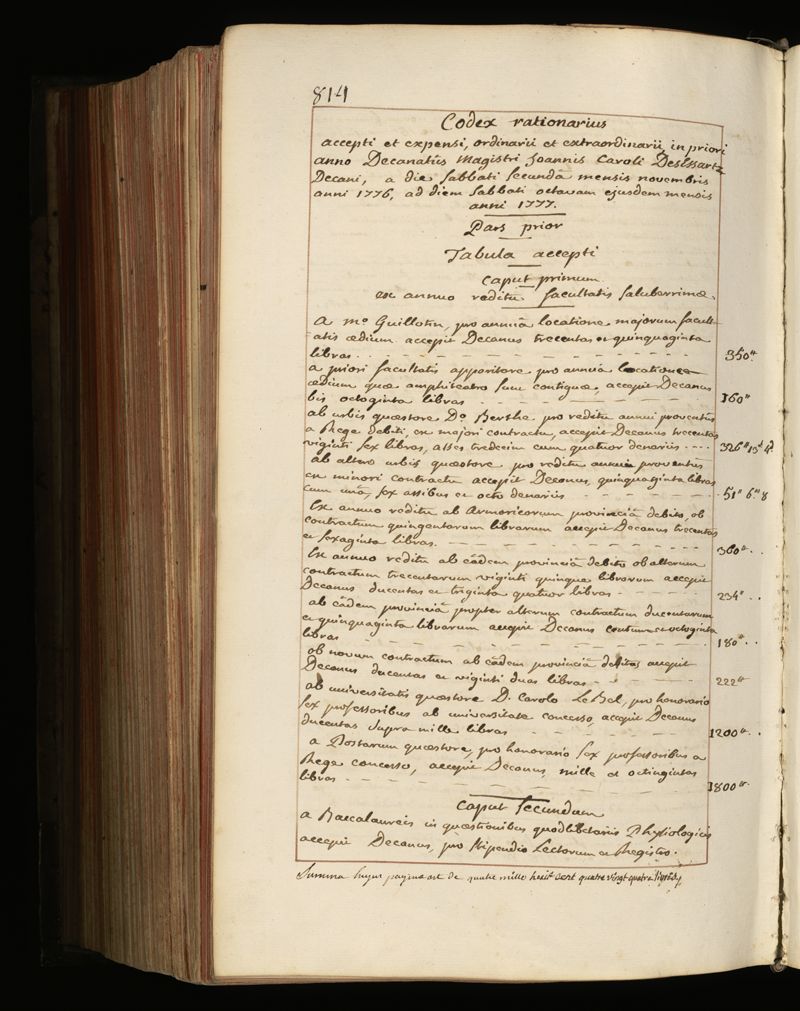 814
Codex rationarius
accepti et expensi, ordinarii et extraordinarii, in priori
anno Decanatûs Magistri Joannis Caroli Desessartz
Decani, a die sabbati secundâ mensis novembris
anni 1776, ad diem sabbati octavam ejusdem mensis
anni 1777.
Pars prior
Tabula accepti
Caput primum
ex annuo reditu facultatis saluberrimæ.
A mo. Guillotin, pro annuâ locatione majorum facult-
atis ædium accepit Decanus trecentas et quinquaginta
libras. . - - - - 350tt.
a priori facultatis apparitore pro annuâ locatione
ædium quæ amphiteatro sunt contiguæ, accepit Decanus
bis octoginta libras - - - - 160tt
ab urbis quæstore Do. Berthe pro reditu annui proventûs
a Rege debiti, ex majori contractu, accepit Decanus trecentas
viginti sex libras, asses tredecim cum quatuor denariis - - - 326tt 13s 4d.
ab altero urbis quæstore pro reditu annui proventus
ex minori contractu accepit Decanus, quinquaginta libras
cum unâ, sex assibus et octo denariis - - - - 51tt 6s 8
Ex annuo reditu ab Armoricorum provinciâ debito, ob
contractum quingentarum librarum accepit Decanus trecentas
et sexaginta libras. - - - - 360tt. .
Ex annuo reditu ab eâdem provinciâ debito ob alterum
contractum trecentarum viginti quinque librarum accepit
Decanus ducentas et triginta quatuor libras - - - - 234tt . .
ab eâdem provinciâ propter alterum contractum ducentarum
et quinquaginta librarum accepit Decanus centum et octoginta
libras - - - - 180tt. .
ob novum contractum ab eâdem provinciâ debitas accepit
Decanus ducentas et viginti duas libras - - - 222tt
ab universitatis quæstore D. Carolo LeBel, pro honorario
sex professoribus ab universitate concesso, accepit Decanus
ducentas supra mille libras - - - - 1200tt. .
a Postarum quæstore, pro honorario sex professoribus a
Rege concesso, accepit Decanus, mille et octingintas
libras - - - - 1800tt.
Caput secundum
a Baccalaureis in quæstionibus quodlibetariis Physiologicis
accepit Decanus, pro stipendio Lectorum et Registro.
Summa hujus paginæ est de quatre mille huit cent quatre vingt quatre